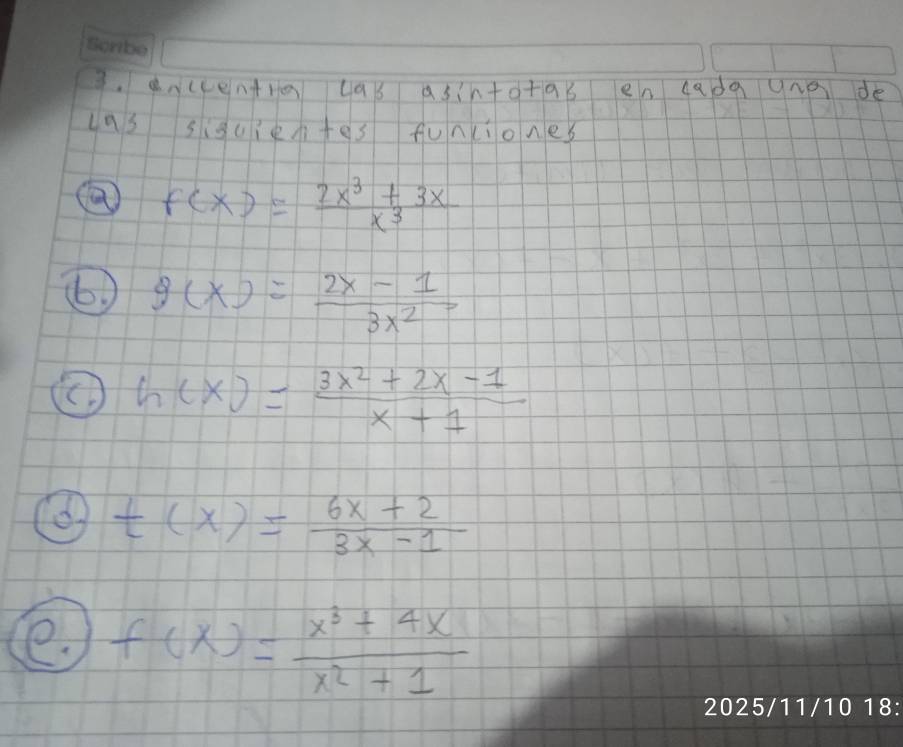 Scribe
3. encuentra las asintotas en cada una de
las siguientes funciones
a f(x) = 2x³ + 3x / x³
b. g(x) = 2x - 1 / 3x²
c. h(x) = 3x² + 2x - 1 / x + 1
d. t(x) = 6x + 2 / 3x - 1
e. f(x) = x³ + 4x / x² + 1
2025/11/10 18: